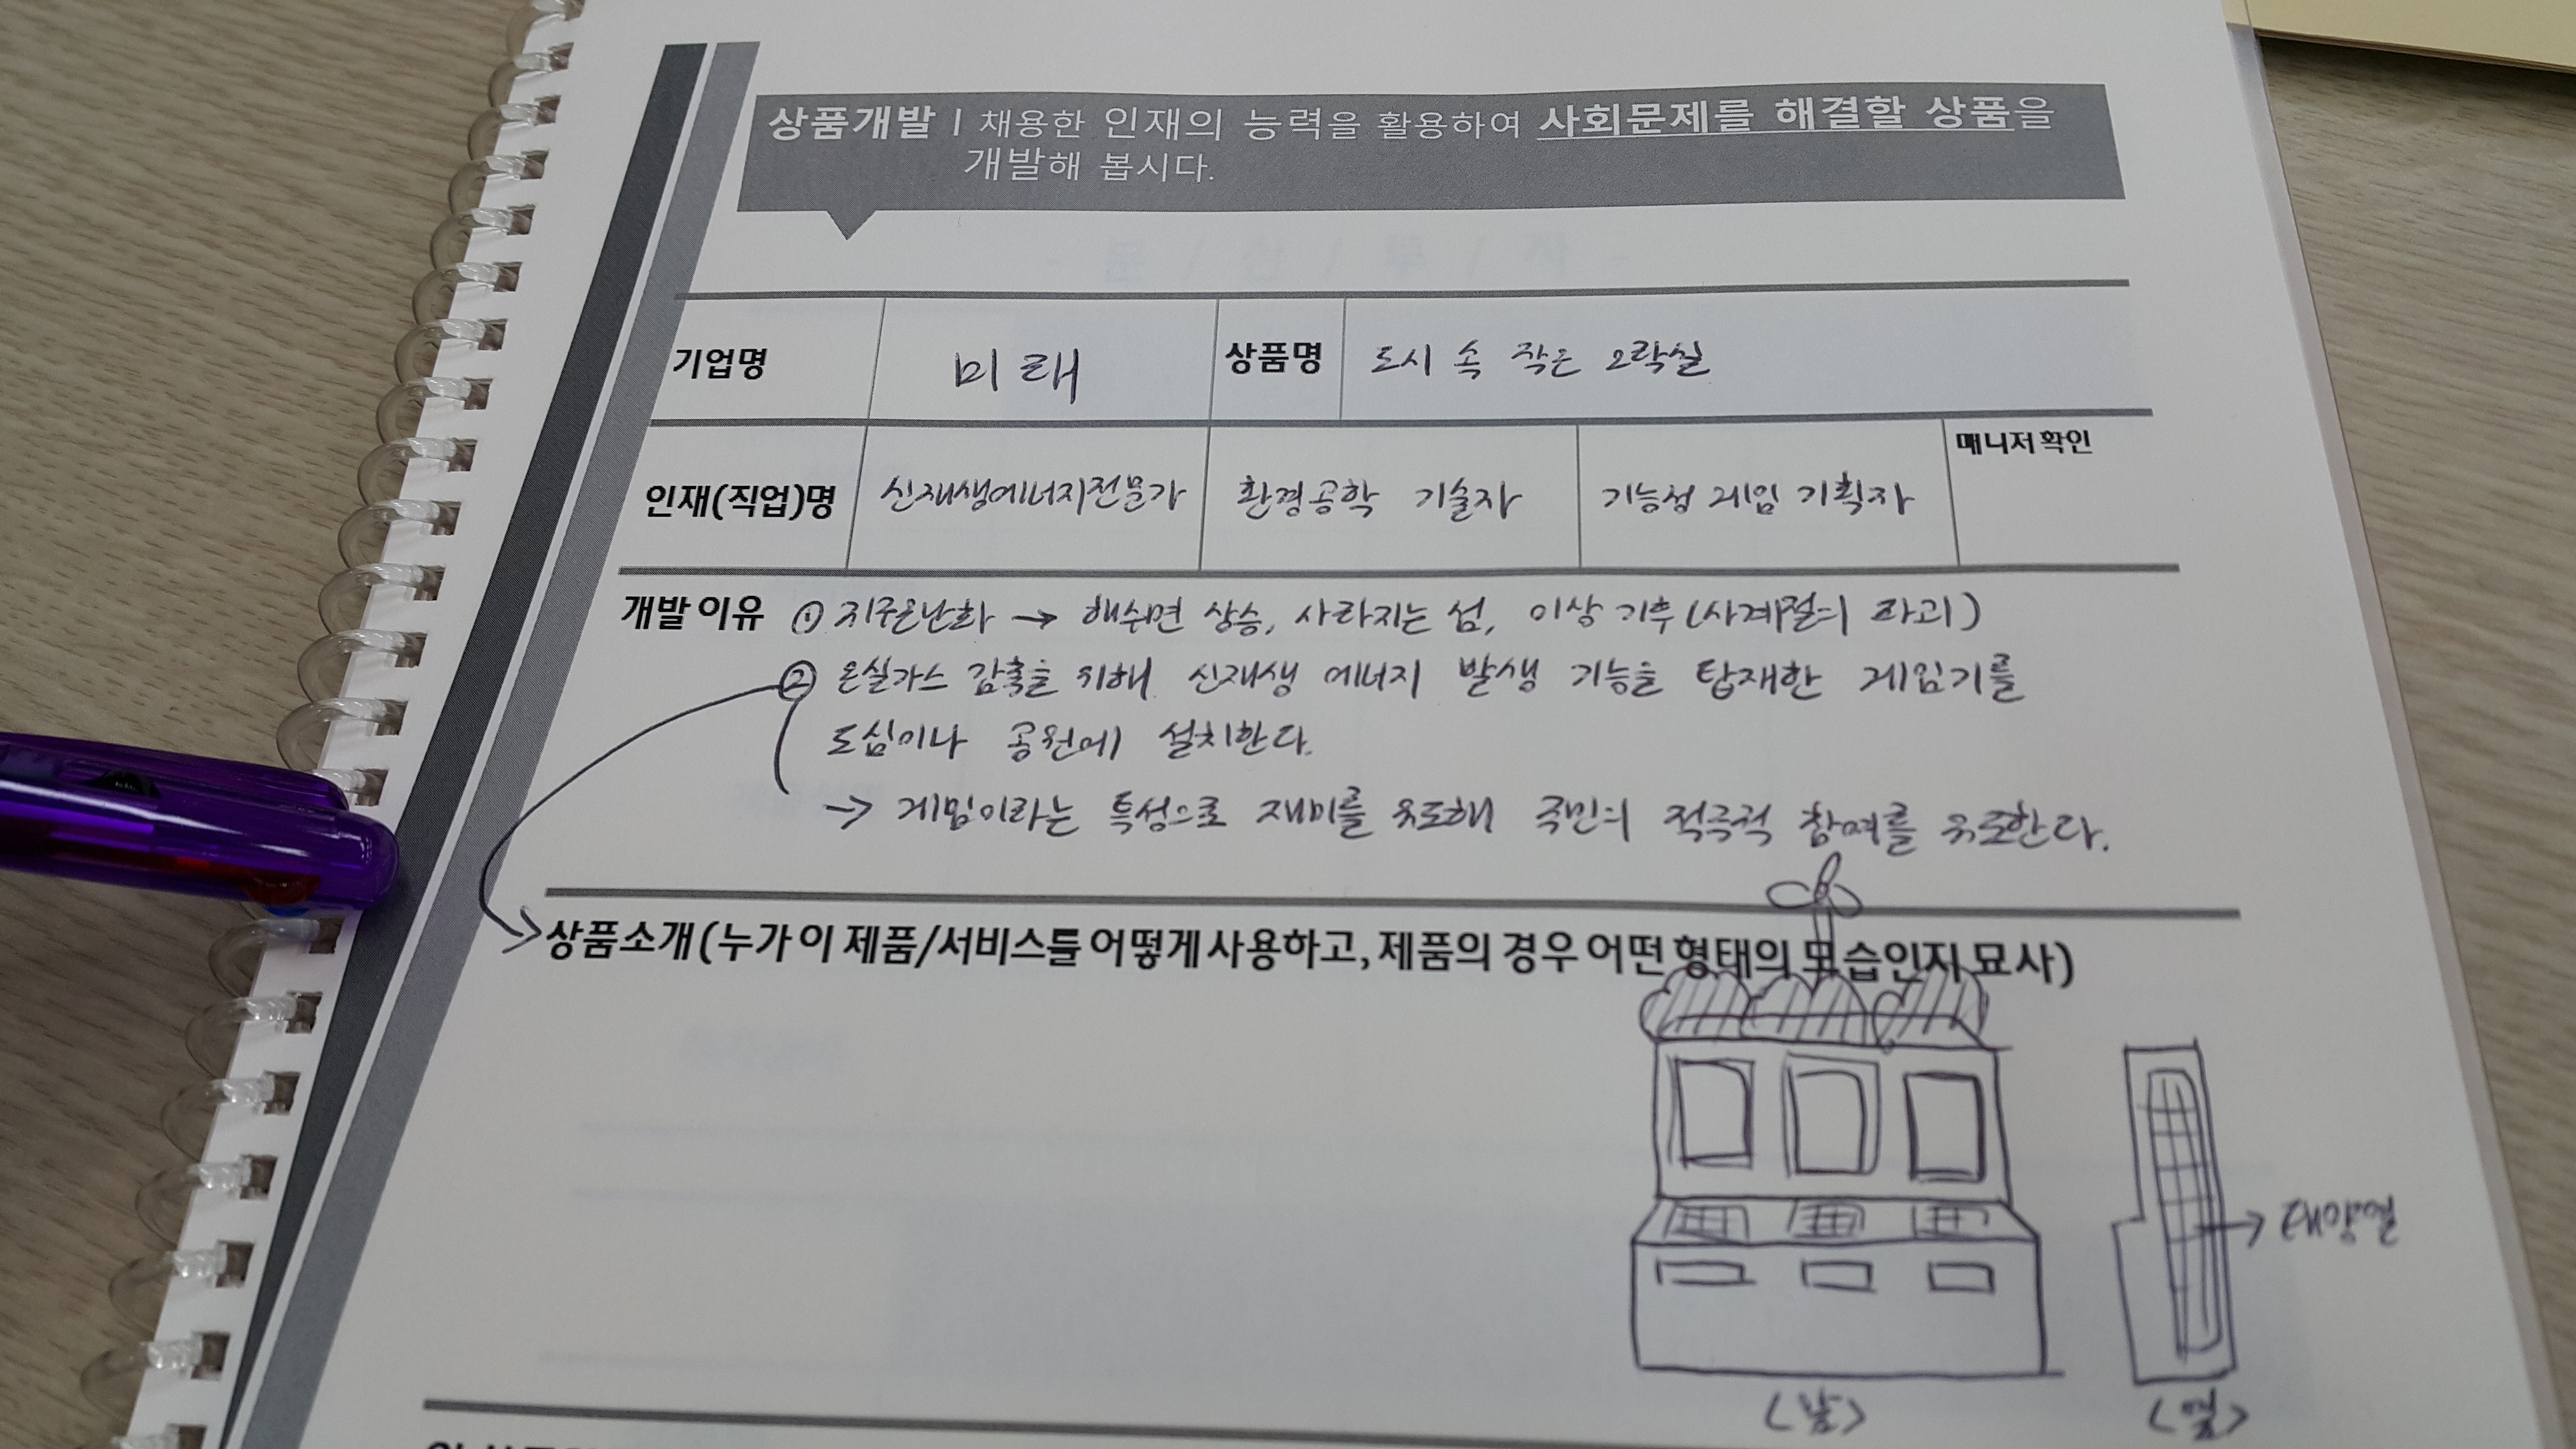 상품개발 | 채용한 인재의 능력을 활용하여 사회문제를 해결할 상품을
개발해 봅시다.
기업명 미래 상품명 도시 속 작은 오락실
인재(직업)명 신재생에너지전문가 환경공학 기술자 기능성 게임 기획자 매니저 확인
개발 이유 ① 지구온난화 → 해수면 상승, 사라지는 섬, 이상 기후(사계절의 파괴)
② 온실가스 감축을 위해 신재생 에너지 발생 기능을 탑재한 게임기를
도심이나 공원에 설치한다.
→ 게임이라는 특성으로 재미를 유도해 국민의 적극적 참여를 유도한다.
상품소개(누가 이 제품/서비스를 어떻게 사용하고, 제품의 경우 어떤 형태의 모습인지 묘사)
→ 태양열
<앞> <옆>